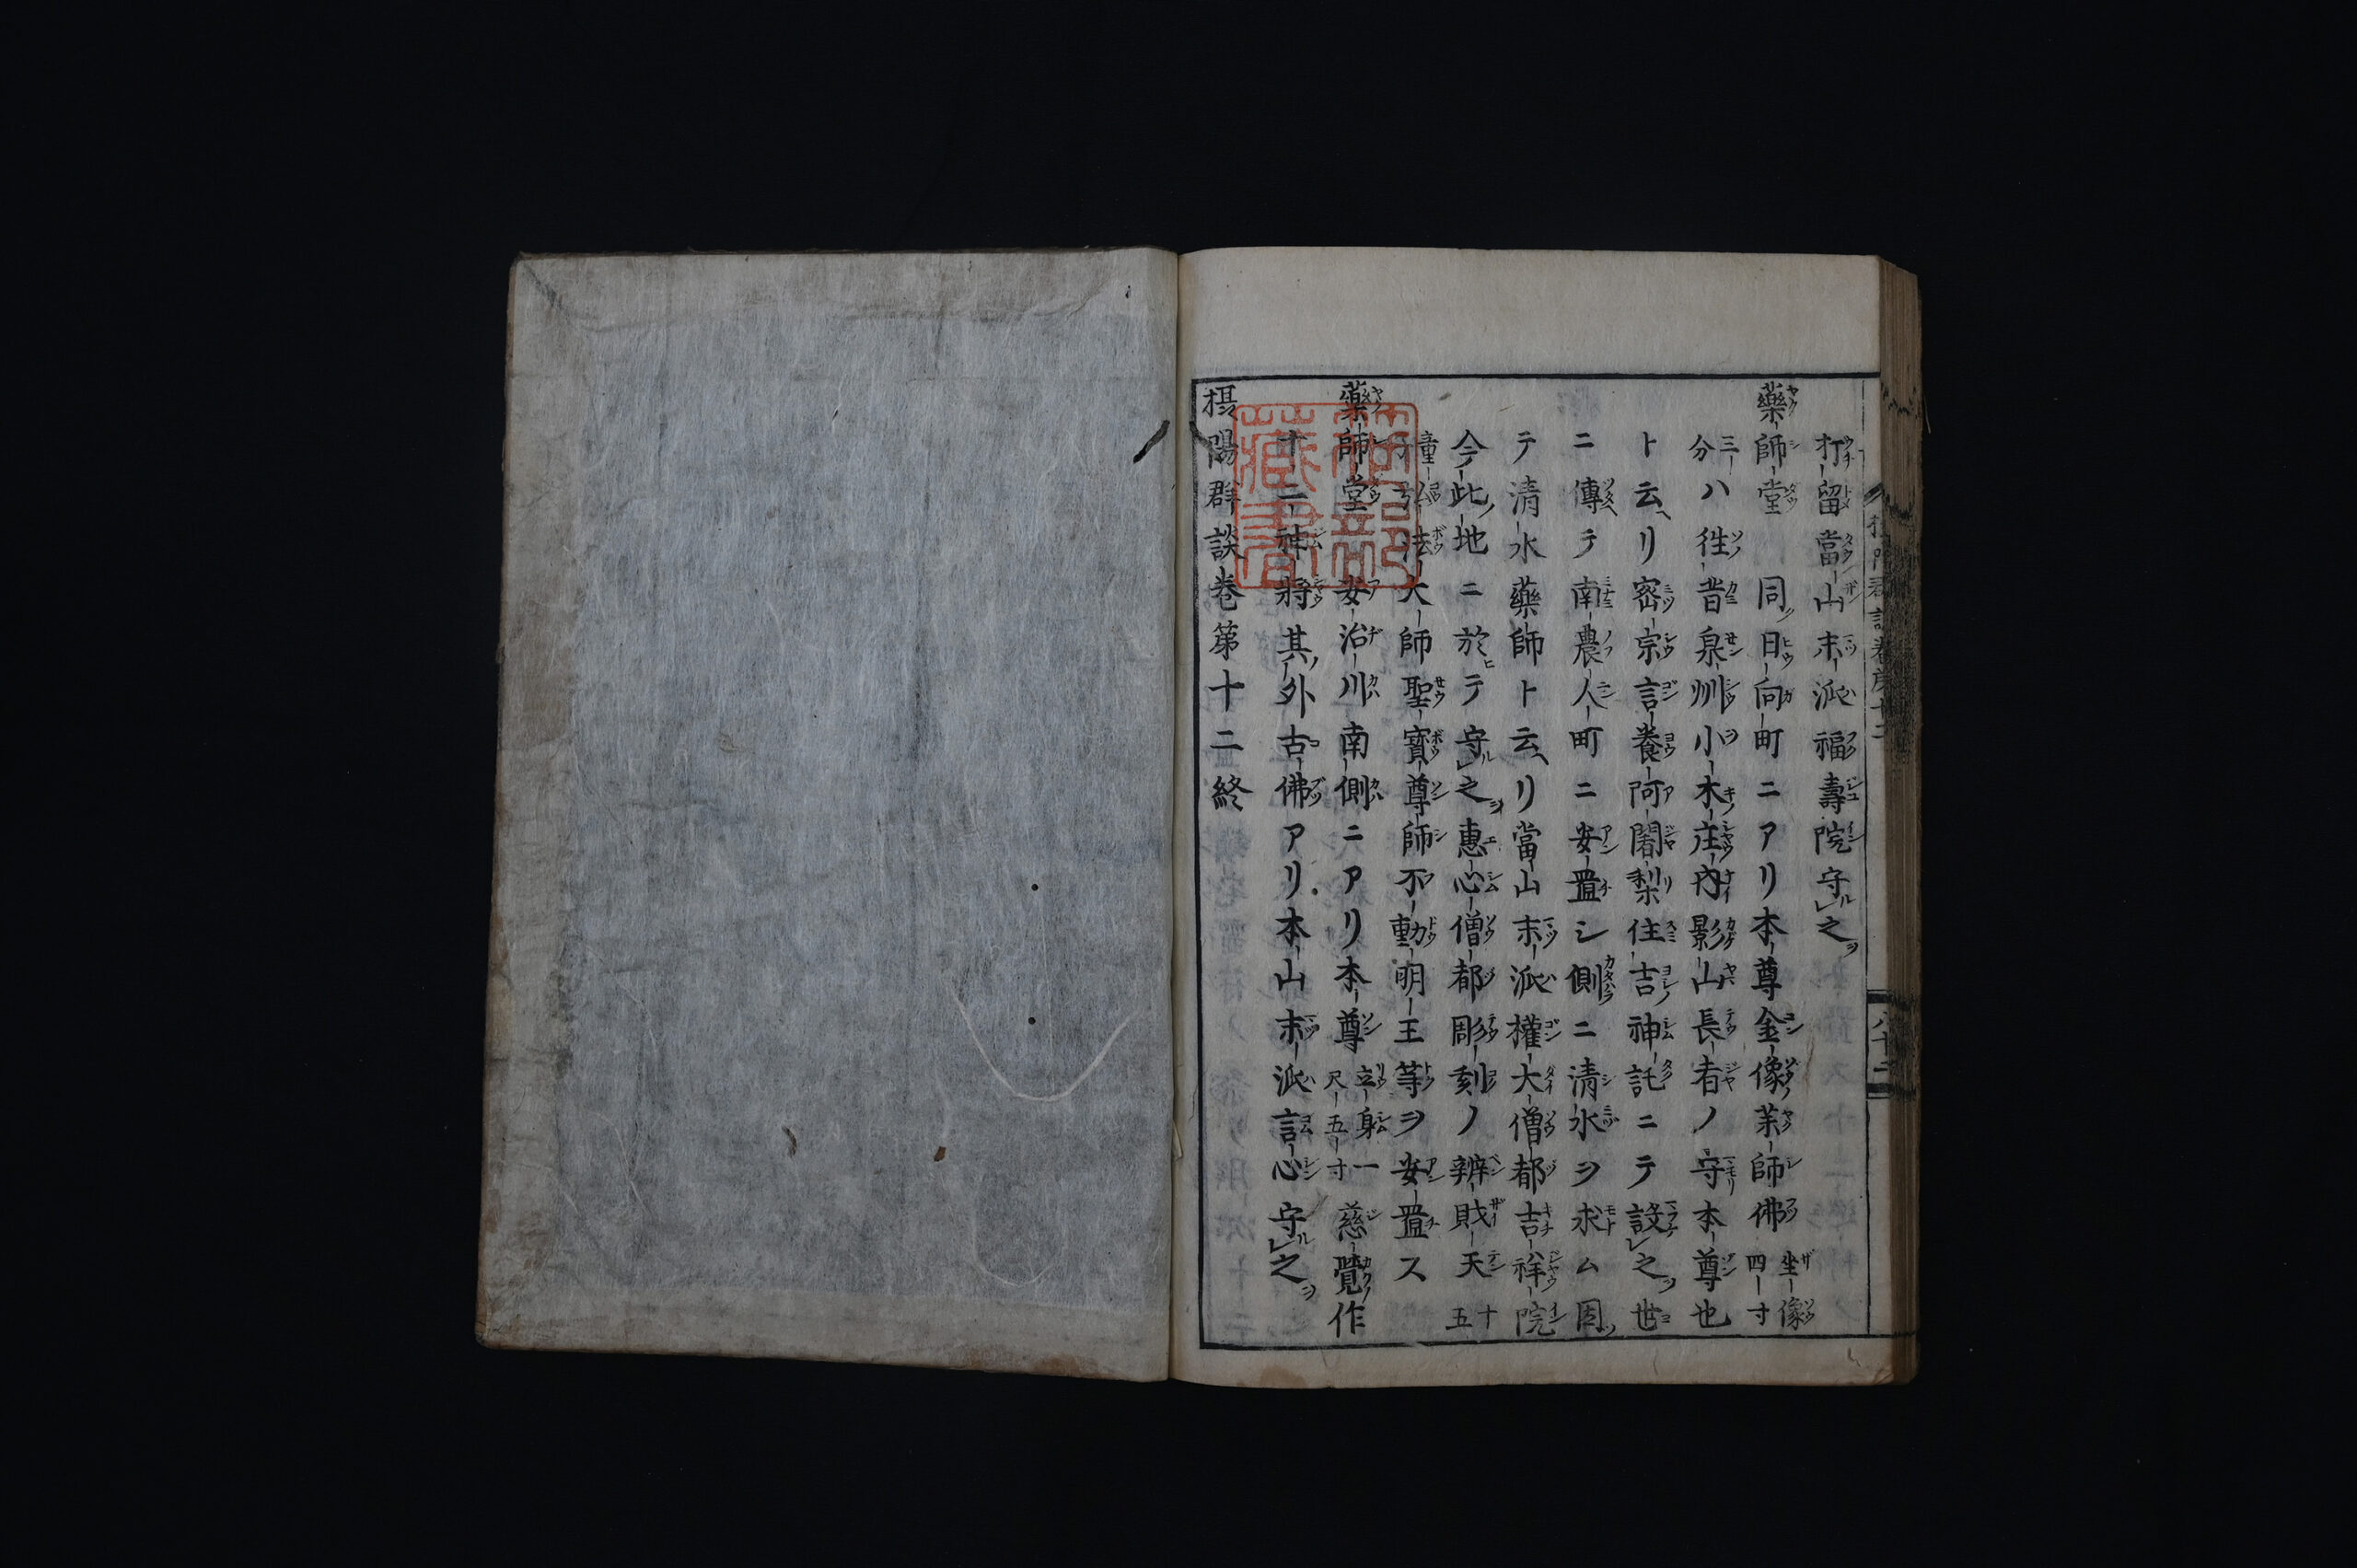 打留當山末派福壽院守之
藥師堂 同日向町ニアリ本尊金像茉師佛 坐像四寸
三分ハ徃昔泉州小木庄内影山長者ノ守本尊也
ト云リ密宗言養阿闍梨住吉神託ニテ設之世
ニ傳テ南農人町ニ安置シ側ニ清水ヲ求ム因
テ清水藥師ト云リ當山末派權大僧都吉祥院
今此地ニ於テ守之惠心僧都彫刻ノ辨財天 十五
童子弘法大師聖寳尊師不動明王等ヲ安置ス
藥師堂 安治川南側ニアリ本尊 立身一尺五寸 慈覺作
十二神將其外古佛アリ本山末派言心守之
摂陽群談巻第十二終
八十二